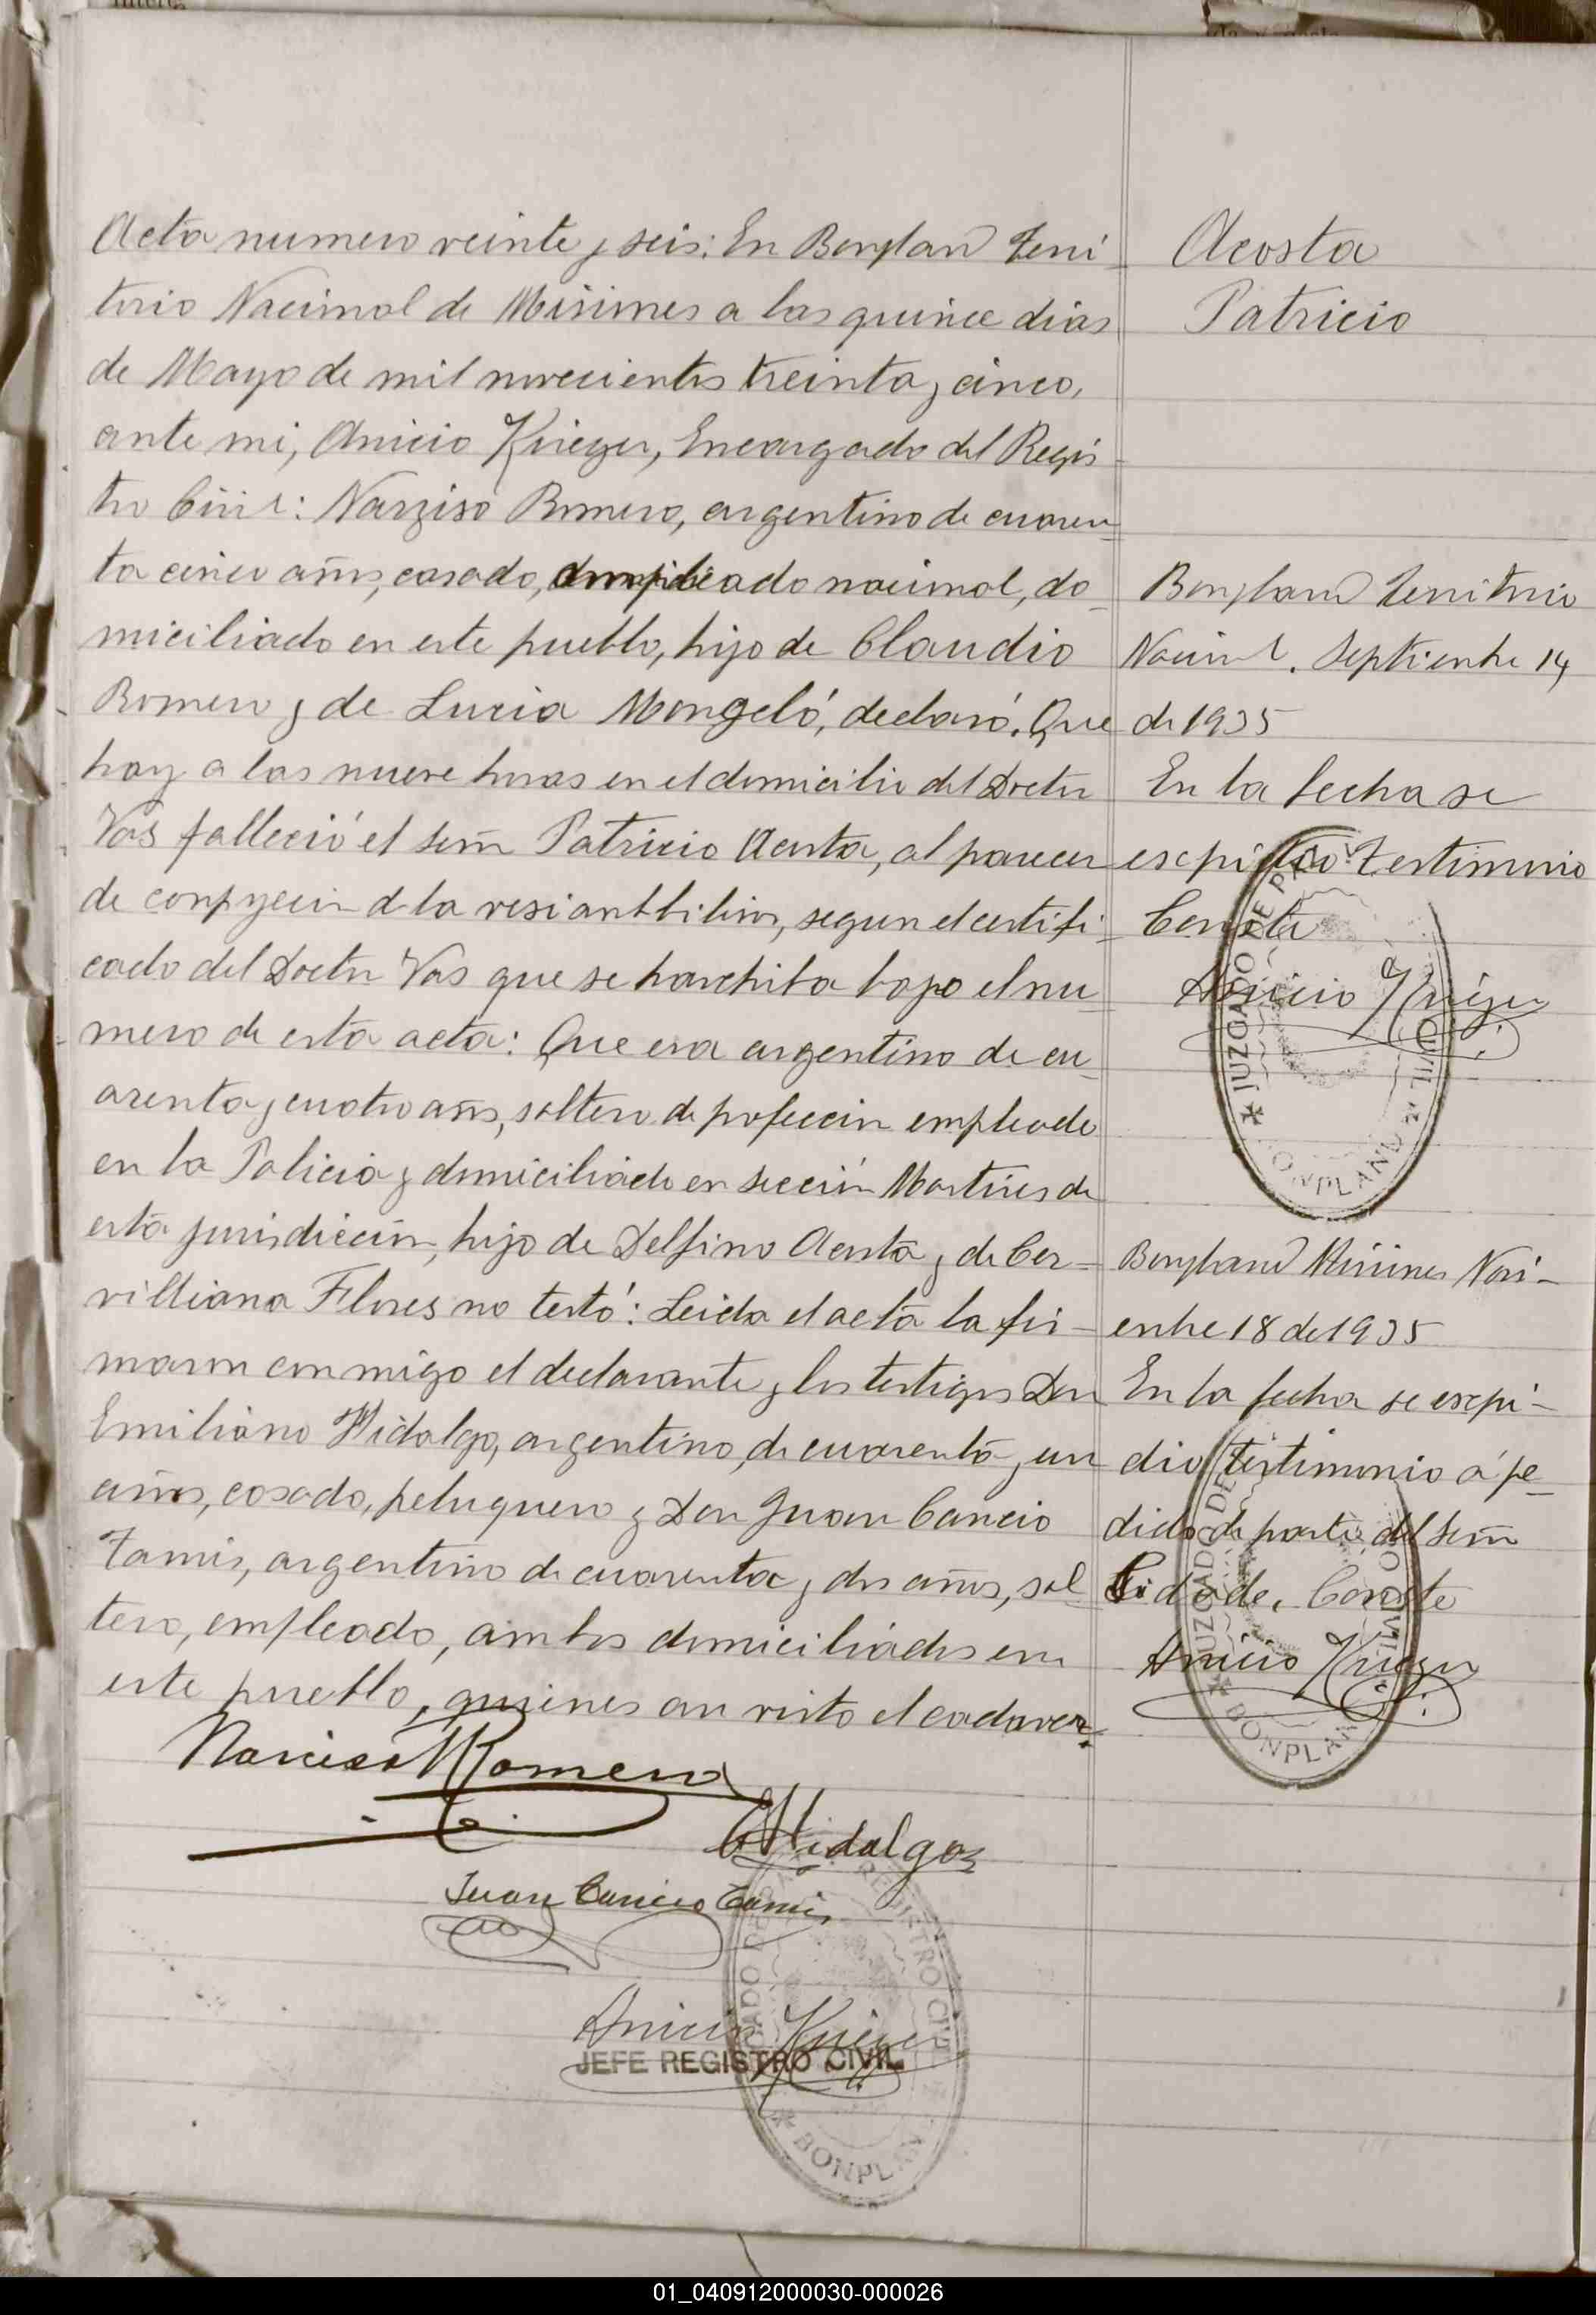 Acta numero veinte y seis: En Bonplan Terri
torio Nacional de Misiones a las quince dias
de Mayo de mil novecientos treinta y cinco,
ante mi, Anicio Krieger, Encargado del Regis
tro Civil: Narziso Romero, argentino de cuaren
ta cinco años, casado, empleado nacional, do
miciliado en este pueblo, hijo de Claudio
Romero y de Lucia Mongeló, declaró. Que
hoy a las nueve horas en el domicilio del Doctor
Vas falleció el señor Patricio Acosta, al parecer
de de la segun el certifi
cado del Doctor Vas que se harchiba bajo el nu
mero de esta acta: Que era argentino de cu
arenta y cuatro años, soltero de profecion empleado
en la Policia y domiciliado en sección Martires de
esta jurisdiccion, hijo de Delfino Acosta y de Cer-
villiana Flores no testó: Leida el acta la fir-
maron conmigo el declarante y los testigos Don
Emiliano Hidalgo, argentino, de cuarenta y un
años, casado, peluquero y Don Juan Cancio
Tamis, argentino de cuarenta y dos años, sol
tero, empleado, ambos domiciliados en
este pueblo, quienes an visto el cadaver.
Narciso Romero
E Hidalgo
Juan Cancio Tamis
Anicio Krieger
JEFE REGISTRO CIVIL
JUZGADO DE REGISTRO CIVIL
BONPLAND
Acosta
Patricio
Bonpland Territorio
Nacional. Septiembre 14
de 1935
En la fecha se
escpidio testimonio
Conste
Anicio Krieger
JUZGADO DE PAZ CIVIL
BONPLAND
Bonpland Misiones Novi-
embre 18 de 1935
En la fecha se escpi-
dio testimonio a pe
dido de parte del señor
Cidade. Conste
Anicio Krieger
JUZGADO DE CIVIL
BONPLAND
01_040912000030-000026